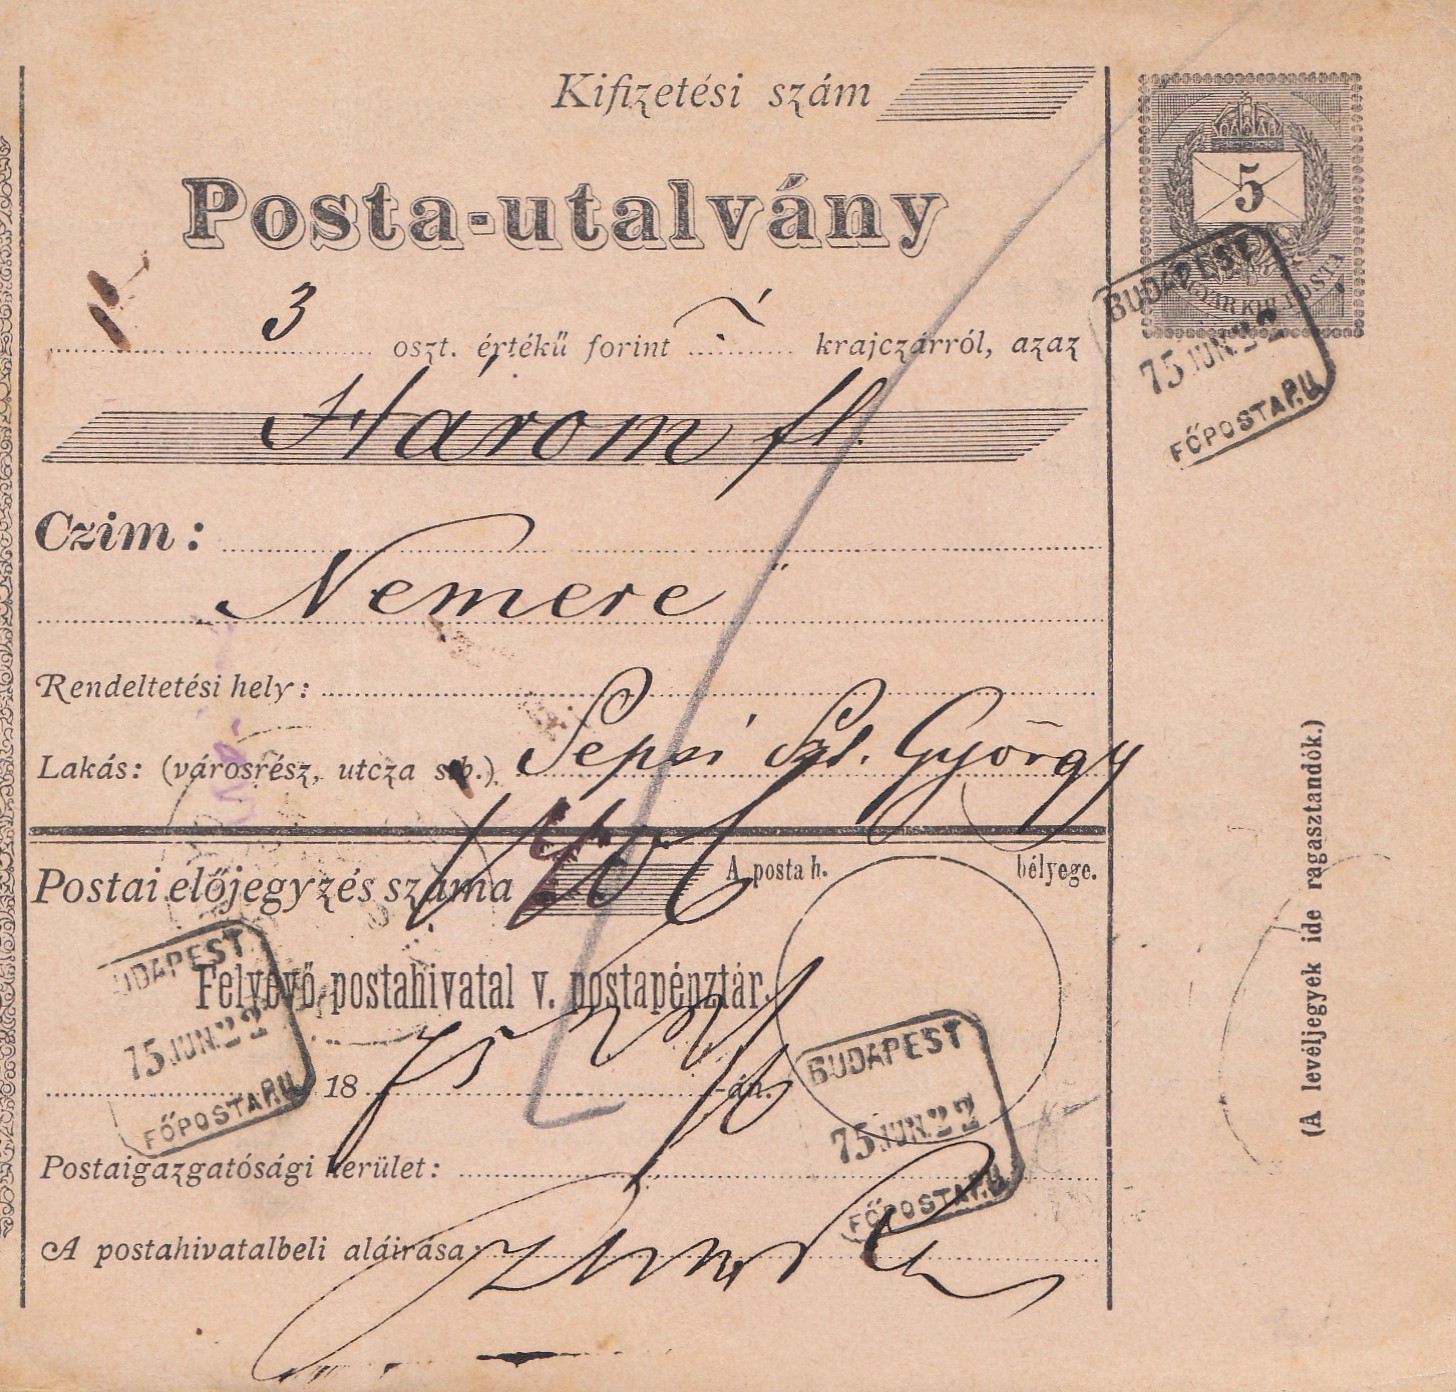 Kifizetési szám
5
MAGYAR KIR. POSTA
Posta-utalvány
BUDAPEST
75 JUN. 22
FŐPOSTAP.U
3 oszt. értékű forint krajczárról, azaz
Három fl.
Czim:
Nemere
Rendeltetési hely:
Lakás: (városrész, utcza stb.) Sepsi Szt. György
Postai előjegyzés száma
A posta h. bélyege.
Felvevő postahivatal v. postapénztár.
BUDAPEST
75 JUN. 22
FŐPOSTAP.U
18 75 -án.
BUDAPEST
75 JUN. 22
FŐPOSTAP.U
Postaigazgatósági kerület:
A postahivatalbeli aláirása:
(A levéljegyek ide ragasztandók.)